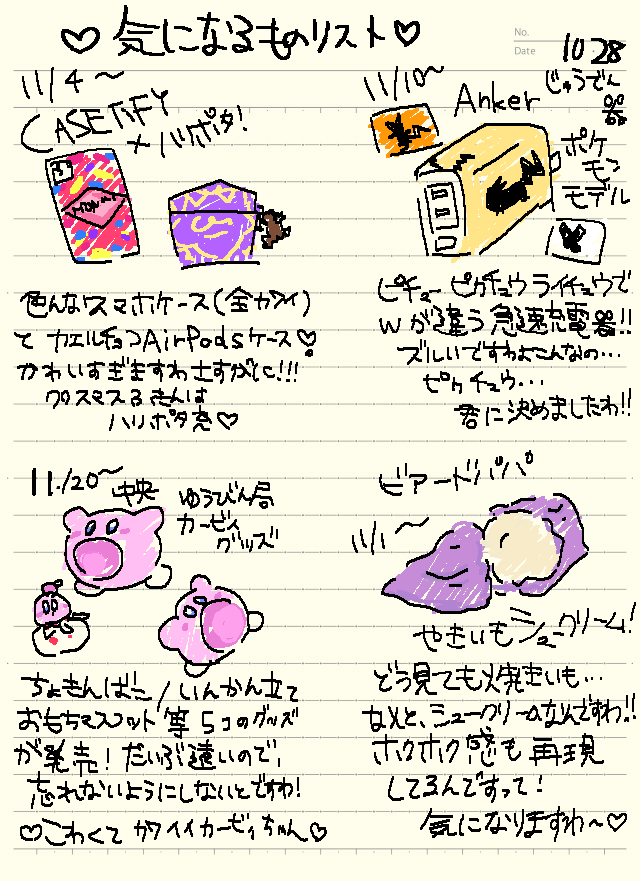 ♡気になるものリスト♡
No.
Date 10.28
11/4〜
CASETiFY
×ハリポタ!
色んなスマホケース(全カワイイ)
と カエルチョコAirPodsケース♡
かわいすぎますわ さすがに!!!
クリスマスるきんは
ハリポタ充♡
11/10〜
Anker
じゅうでん
器
ポケ
モン
モデル
ピチュー ピカチュウ ライチュウで
Wが違う急速充電器!!
ズルいですわよこんなの…
ピカチュウ…
君に決めましたわ!!
11/20〜
中央
ゆうびん局
カービィ
グッズ
ちょきんばこ/いんかん立て
おもちマスコット 等 5コのグッズ
が発売!だいぶ遠いので、
忘れないようにしないとですわ!
♡こわくて カワイイカービィちゃん♡
ビアードパパ
11/1〜
やきいもシュークリーム!
どう見ても焼きいも…
なんと、シュークリームなんですわ!!
ホクホク感も再現
してるんですって!
気になりますわ〜♡